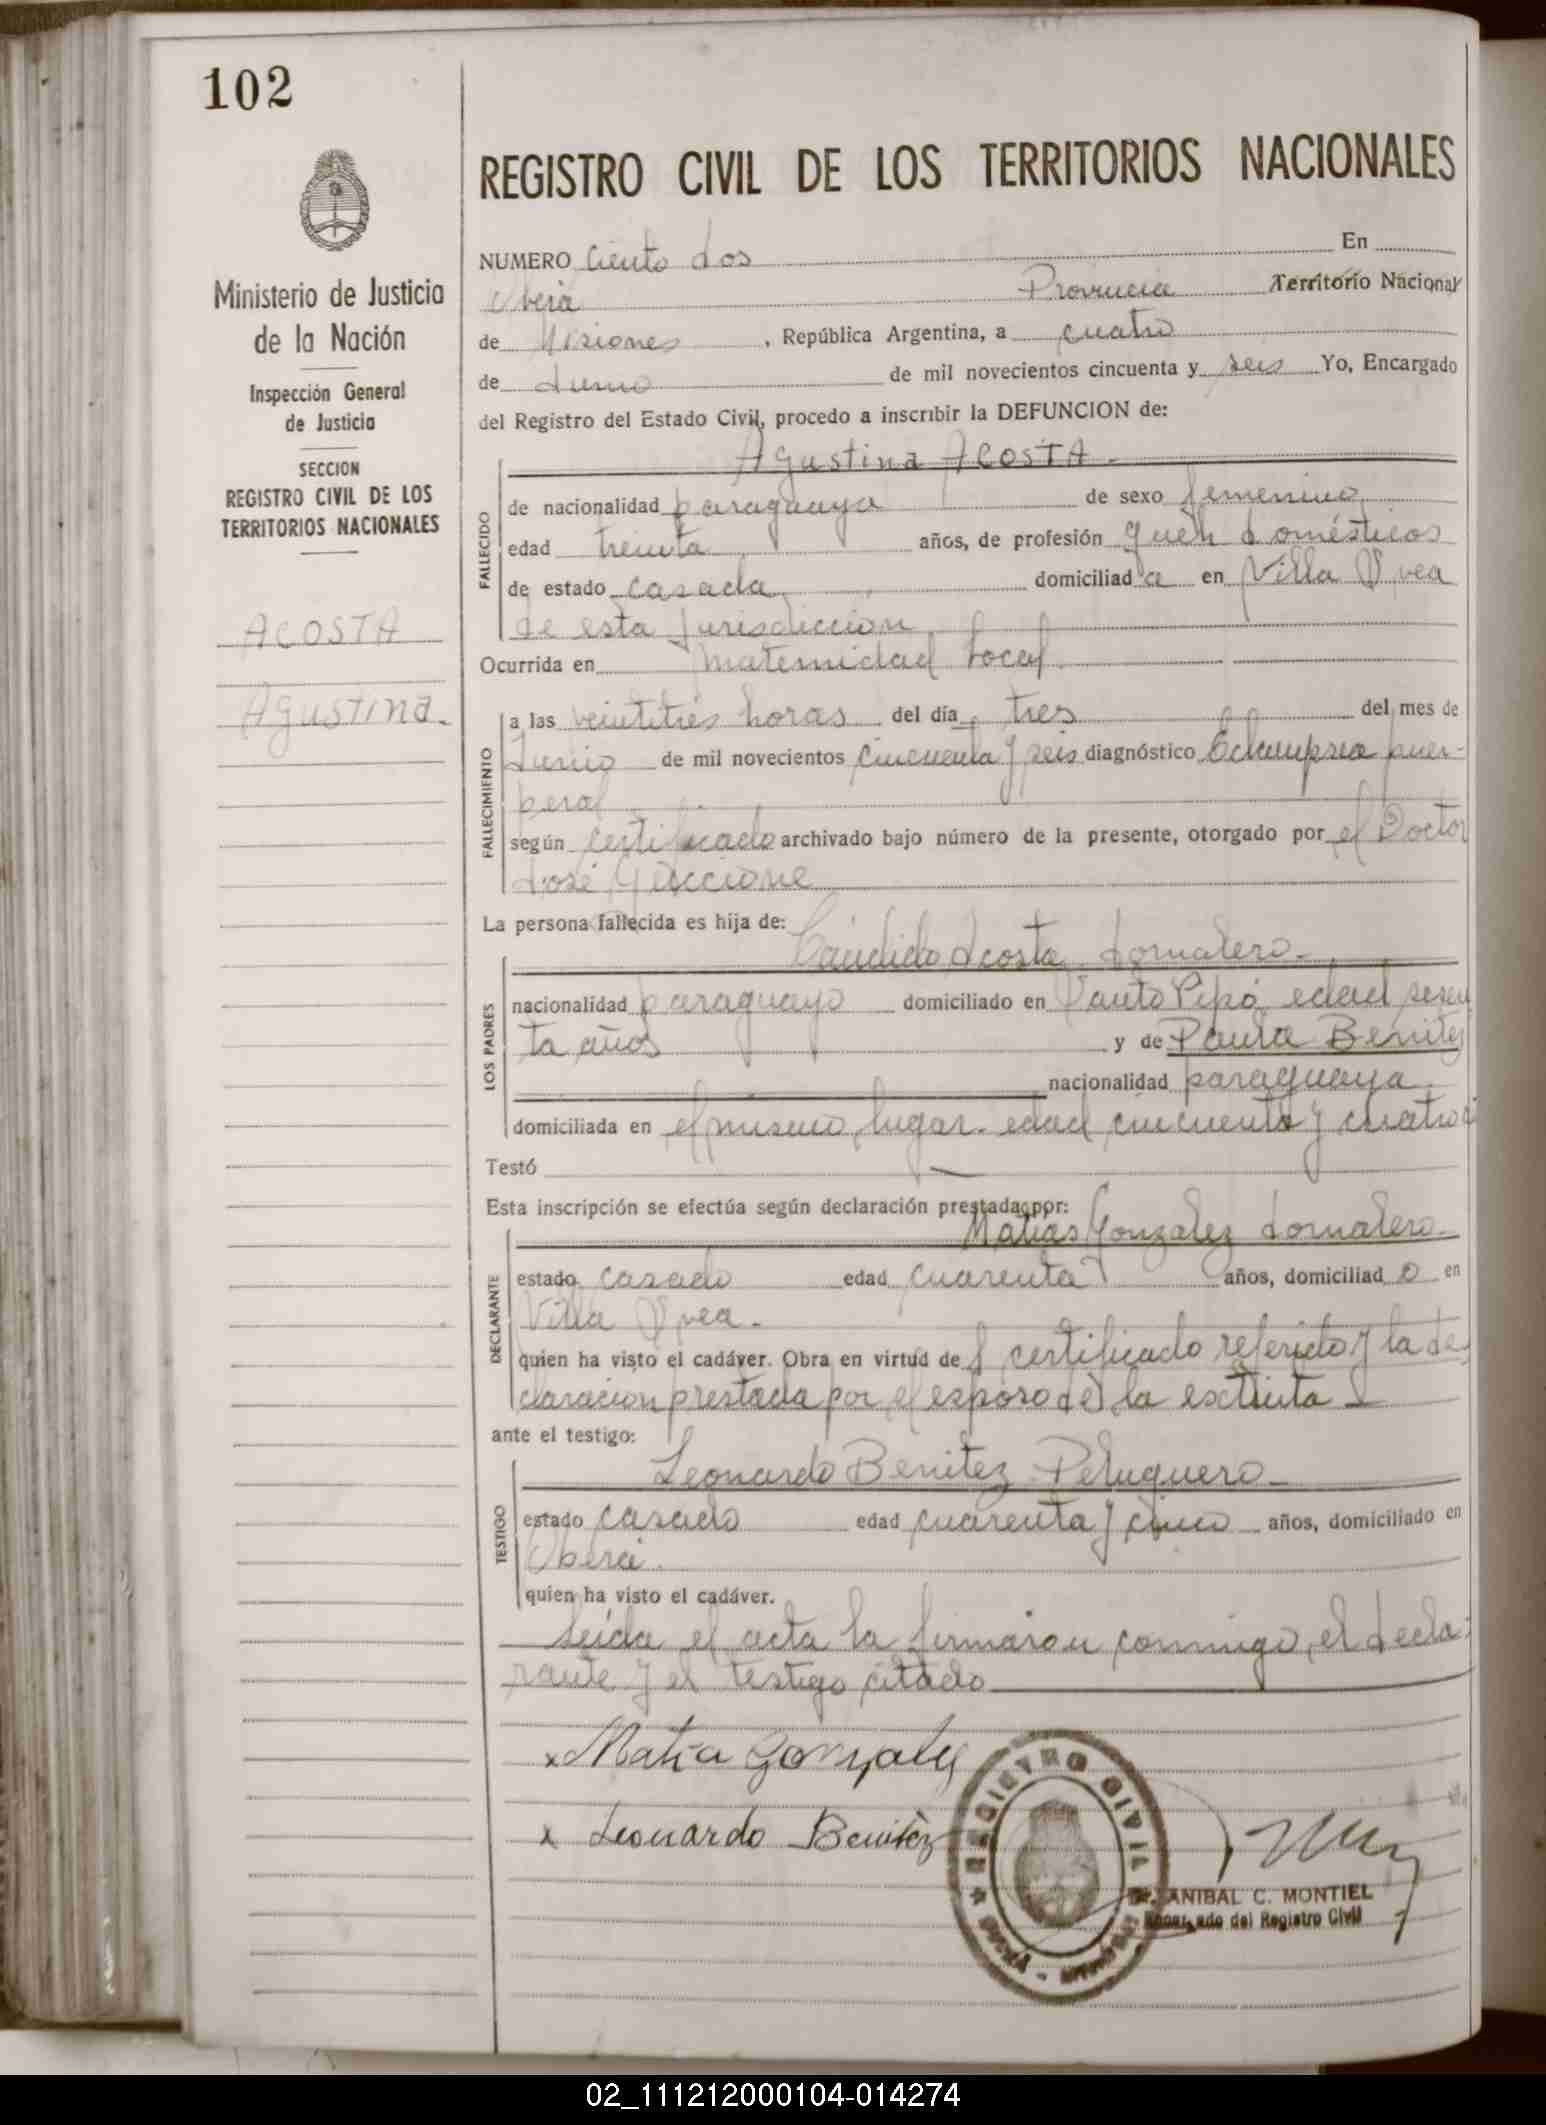 102
REGISTRO CIVIL DE LOS TERRITORIOS NACIONALES
Ministerio de Justicia
de la Nación
Inspección General
de Justicia
SECCION
REGISTRO CIVIL DE LOS
TERRITORIOS NACIONALES
ACOSTA
Agustina.
NUMERO Ciento dos En
Oberá Provincia Territorio Nacional
de Misiones, República Argentina, a cuatro
de Junio de mil novecientos cincuenta y seis Yo, Encargado
del Registro del Estado Civil, procedo a inscribir la DEFUNCION de:
Agustina ACOSTA.
FALLECIDO
de nacionalidad paraguaya de sexo femenino
edad treinta años, de profesión queh domésticos
de estado casada domiciliad a en Villa Svea
de esta jurisdicción
Ocurrida en maternidad local
FALLECIMIENTO
a las veintitrés horas del día tres del mes de
Junio de mil novecientos cincuenta y seis diagnóstico Eclampsia puer-
peral
según certificado archivado bajo número de la presente, otorgado por el Doctor
José
La persona fallecida es hija de:
Cándido Acosta Jornalero-
LOS PADRES
nacionalidad paraguayo domiciliado en Santo Pipó edad sesen
ta años y de Paula Benitez
nacionalidad paraguaya
domiciliada en el mismo lugar. edad cincuenta y cuatro
Testó —
Esta inscripción se efectúa según declaración prestada por:
Matías Gonzalez Jornalero-
DECLARANTE
estado casado edad cuarenta años, domiciliad o en
Villa Svea.
quien ha visto el cadáver. Obra en virtud del certificado referido y la de
claración prestada por el esposo de la extinta
ante el testigo:
Leonardo Benitez Peluquero-
TESTIGO
estado casado edad cuarenta y cinco años, domiciliado en
Oberá.
quien ha visto el cadáver.
Leída el acta la firmaron conmigo, el decla-
rante y el testigo citado
x Matia Gonzalez
x Leonardo Benitez
REGISTRO CIVIL
ANIBAL C. MONTIEL
Encargado del Registro Civil
02_111212000104-014274